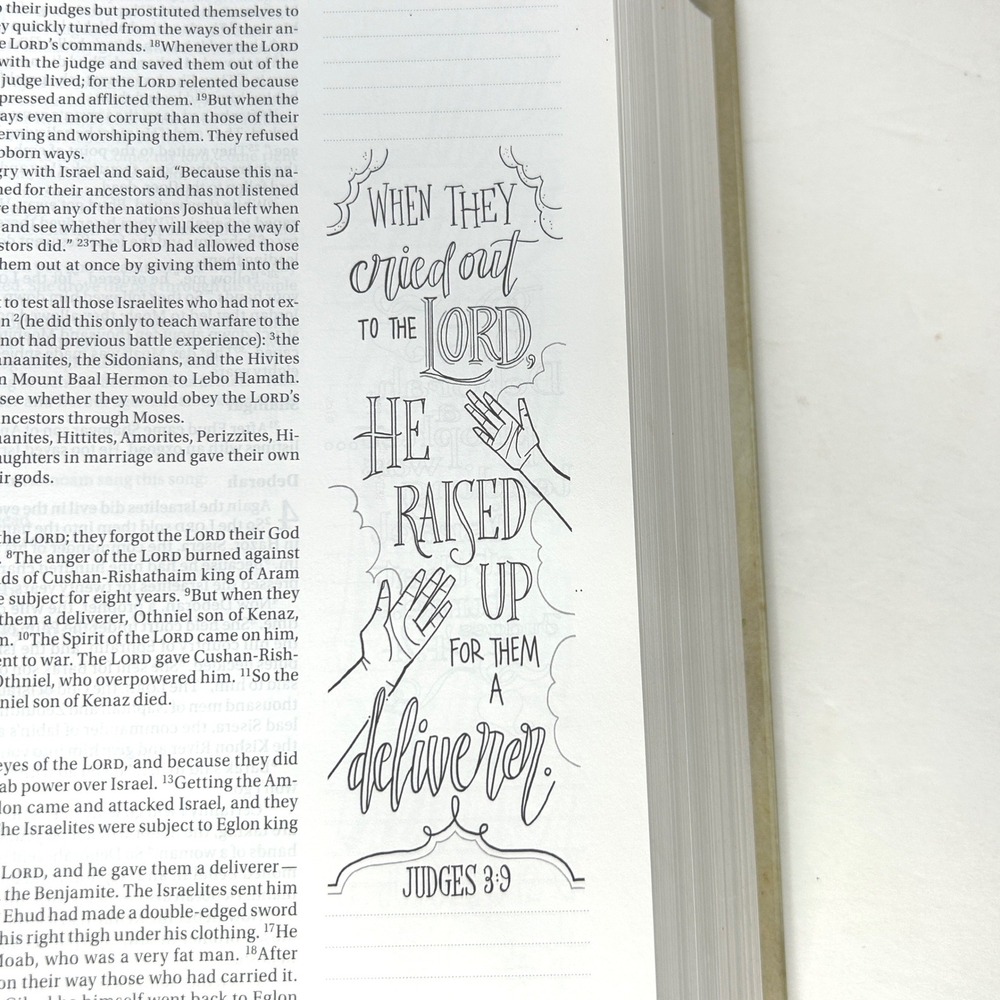 their judges but prostituted themselves to
y quickly turned from the ways of their an-
e LORD's commands. 18Whenever the LORD
with the judge and saved them out of the
judge lived; for the LORD relented because
pressed and afflicted them. 19But when the
ays even more corrupt than those of their
erving and worshiping them. They refused
bborn ways.
gry with Israel and said, “Because this na-
ned for their ancestors and has not listened
e them any of the nations Joshua left when
and see whether they will keep the way of
stors did.” 23The LORD had allowed those
hem out at once by giving them into the
to test all those Israelites who had not ex-
n 2(he did this only to teach warfare to the
not had previous battle experience): 3the
naanites, the Sidonians, and the Hivites
n Mount Baal Hermon to Lebo Hamath.
see whether they would obey the LORD's
ncestors through Moses.
anites, Hittites, Amorites, Perizzites, Hi-
aughters in marriage and gave their own
ir gods.
the LORD; they forgot the LORD their God
8The anger of the LORD burned against
ds of Cushan-Rishathaim king of Aram
e subject for eight years. 9But when they
them a deliverer, Othniel son of Kenaz,
m. 10The Spirit of the LORD came on him,
ent to war. The LORD gave Cushan-Rish-
Othniel, who overpowered him. 11So the
niel son of Kenaz died.
eyes of the LORD, and because they did
ab power over Israel. 13Getting the Am-
lon came and attacked Israel, and they
he Israelites were subject to Eglon king
LORD, and he gave them a deliverer—
the Benjamite. The Israelites sent him
Ehud had made a double-edged sword
his right thigh under his clothing. 17He
Moab, who was a very fat man. 18After
on their way those who had carried it.
he himself went back to Eglon
WHEN THEY
cried out
TO THE LORD,
HE
RAISED
UP
FOR THEM
A
deliverer.
JUDGES 3:9